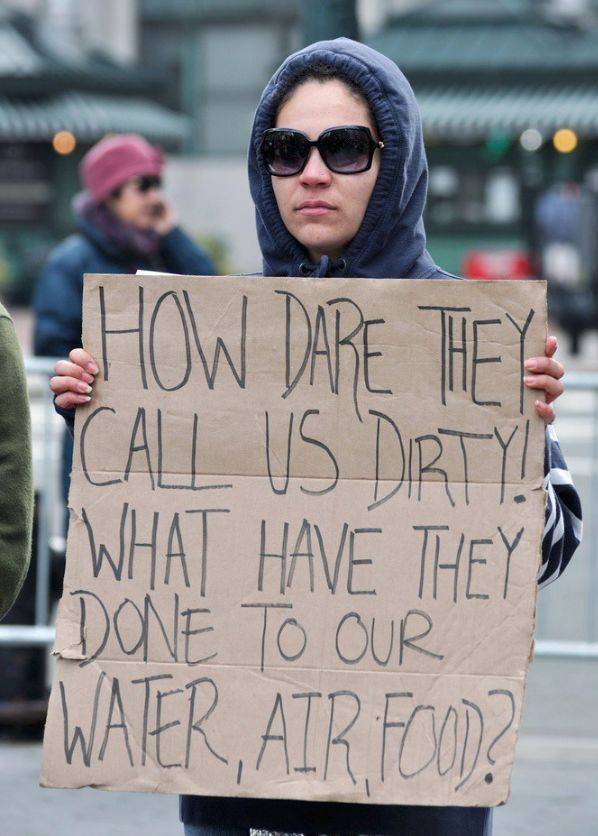 HOW DARE THEY
CALL US DIRTY!
WHAT HAVE THEY
DONE TO OUR
WATER, AIR, FOOD?